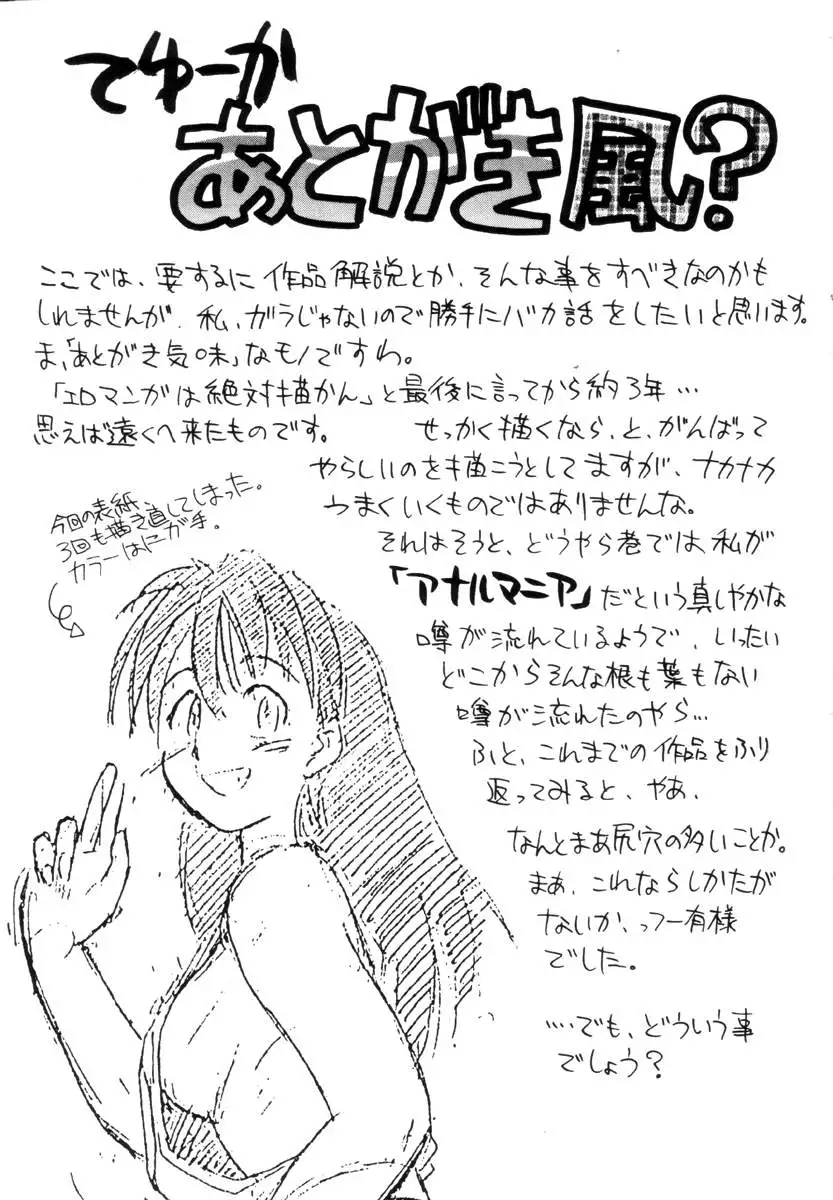 てゅーか
あとがき風?
ここでは、要するに作品解説とか、そんな事をすべきなのかも
しれませんが、私、ガラじゃないので勝手にバカ話をしたいと思います。
ま、「あとがき気味」なモノですわ。
「エロマンガは絶対描かん」と最後に言ってから約3年…
思えば遠くへ来たものです。
せっかく描くなら、と、がんばって
やらしいのを描こうとしてますが、ナカナカ
うまくいくものではありませんな。
それはそうと、どうやら巷では、私が
「アナルマニア」だという真しやかな
噂が流れているようで、いったい
どこからそんな根も葉もない
噂が流れたのやら…
ふと、これまでの作品をふり
返ってみると、やあ、
なんとまあ尻穴の多いことか。
まぁ、これならしかたが
ないか、っつー有様
でした。
….でも、どういう事
でしょう?
今回の表紙
3回も描き直してしまった。
カラーはにが手。